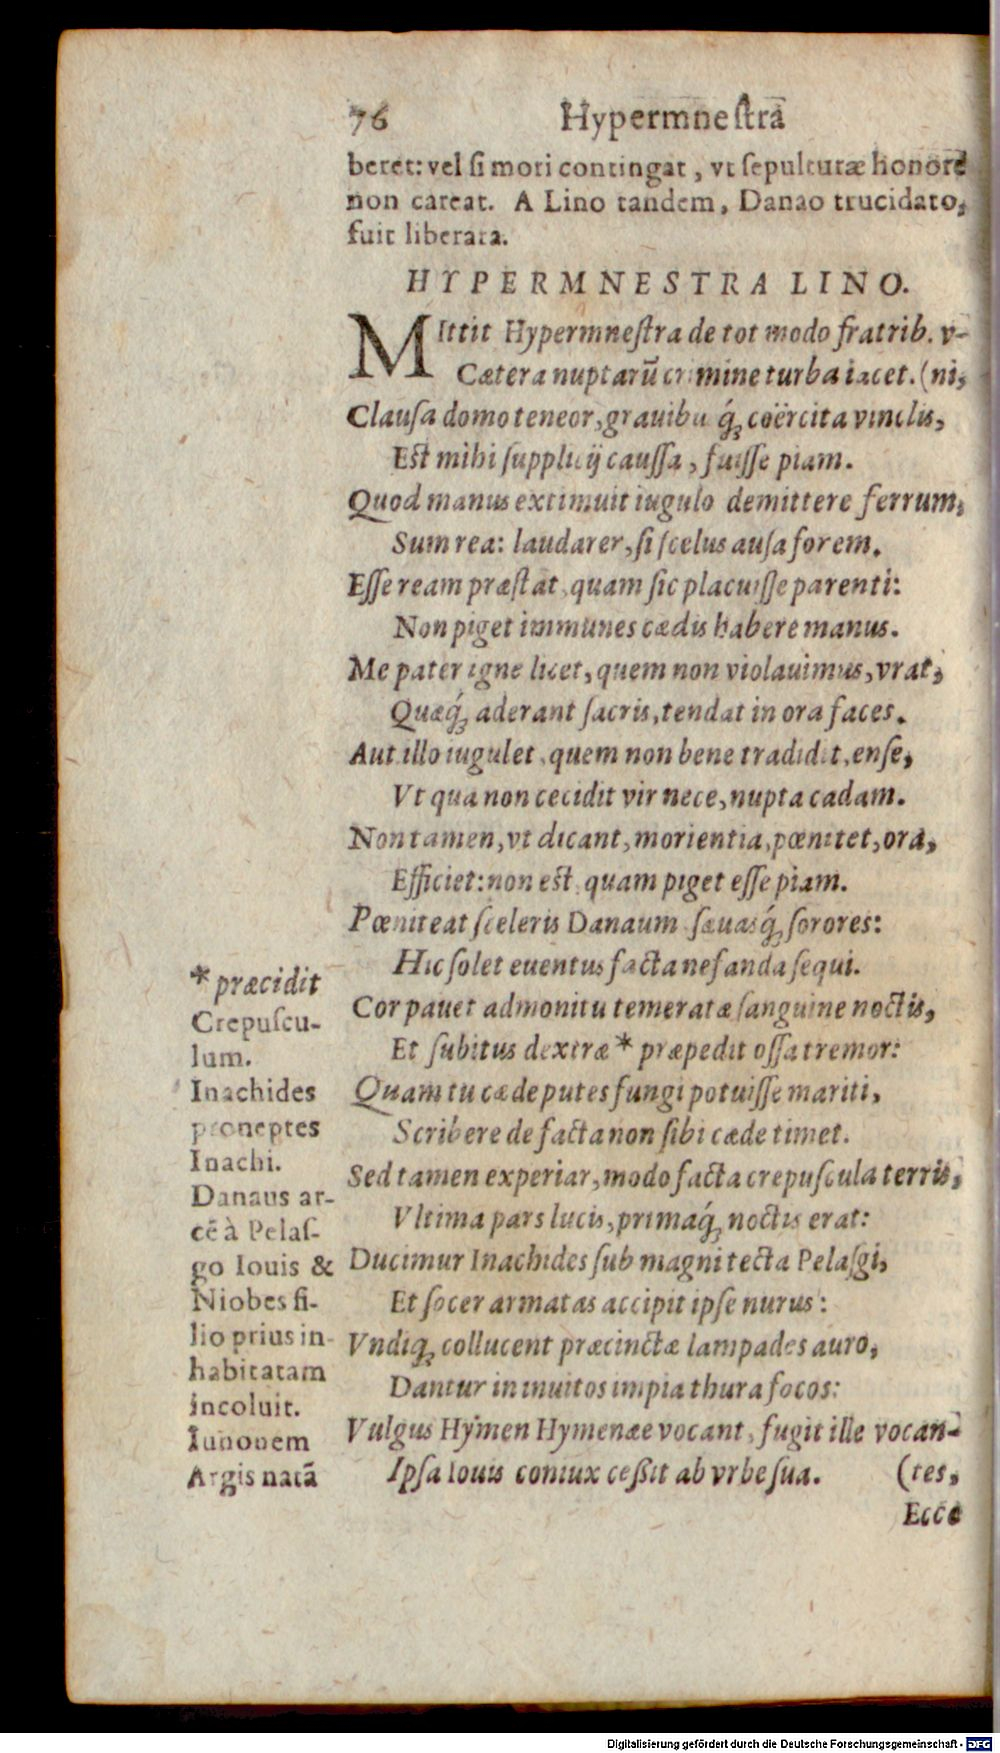 76 Hypermneſtra
beret: vel ſi mori contingat, vt ſepulturæ honore
non careat. A Lino tandem, Danao trucidato,
fuit liberata.
HYPERMNESTRA LINO.
MIttit Hypermneſtra de tot modo fratrib. v-
Cætera nuptarū crimine turba iacet. (ni,
Clauſa domo teneor, grauibuſq́; coërcita vinclis,
Eſt mihi ſupplicij cauſſa, fuiſſe piam.
Quod manus extimuit iugulo demittere ferrum,
Sum rea: laudarer, ſi ſcelus auſa forem.
Eſſe ream præſtat, quam ſic placuiſſe parenti:
Non piget immunes cædis habere manus.
Me pater igne licet, quem non violauimus, vrat,
Quæq́; aderant ſacris, tendat in ora faces.
Aut illo iugulet, quem non bene tradidit, enſe,
Vt qua non cecidit vir nece, nupta cadam.
Non tamen, vt dicant, morientia, pœnitet, ora,
Efficiet: non eſt, quam piget eſſe piam.
Pœniteat ſceleris Danaum ſæuasq́; ſorores:
Hic ſolet euentus facta nefanda ſequi.
Cor pauet admonitu temeratæ ſanguine noctis,
Et ſubitus dextræ * præpedit oſſa tremor:
Quam tu cæde putes fungi potuiſſe mariti,
Scribere de facta non ſibi cæde timet.
Sed tamen experiar, modo facta crepuſcula terris,
Vltima pars lucis, primaq́; noctis erat:
Ducimur Inachides ſub magni tecta Pelaſgi,
Et ſocer armatas accipit ipſe nurus:
Vndiq; collucent præcinctæ lampades auro,
Dantur in inuitos impia thura focos:
Vulgus Hymen Hymenæe vocant, fugit ille vocan-
Ipſa Iouis coniux ceſſit ab vrbe ſua. (tes,
Ecce
* præcidit
Crepuſcu-
lum.
Inachides
proneptes
Inachi.
Danaus ar-
cē à Pelaſ-
go Iouis &
Niobes fi-
lio prius in-
habitatam
incoluit.
Iunonem
Argis natā
Digitalisierung gefördert durch die Deutsche Forschungsgemeinschaft - DFG